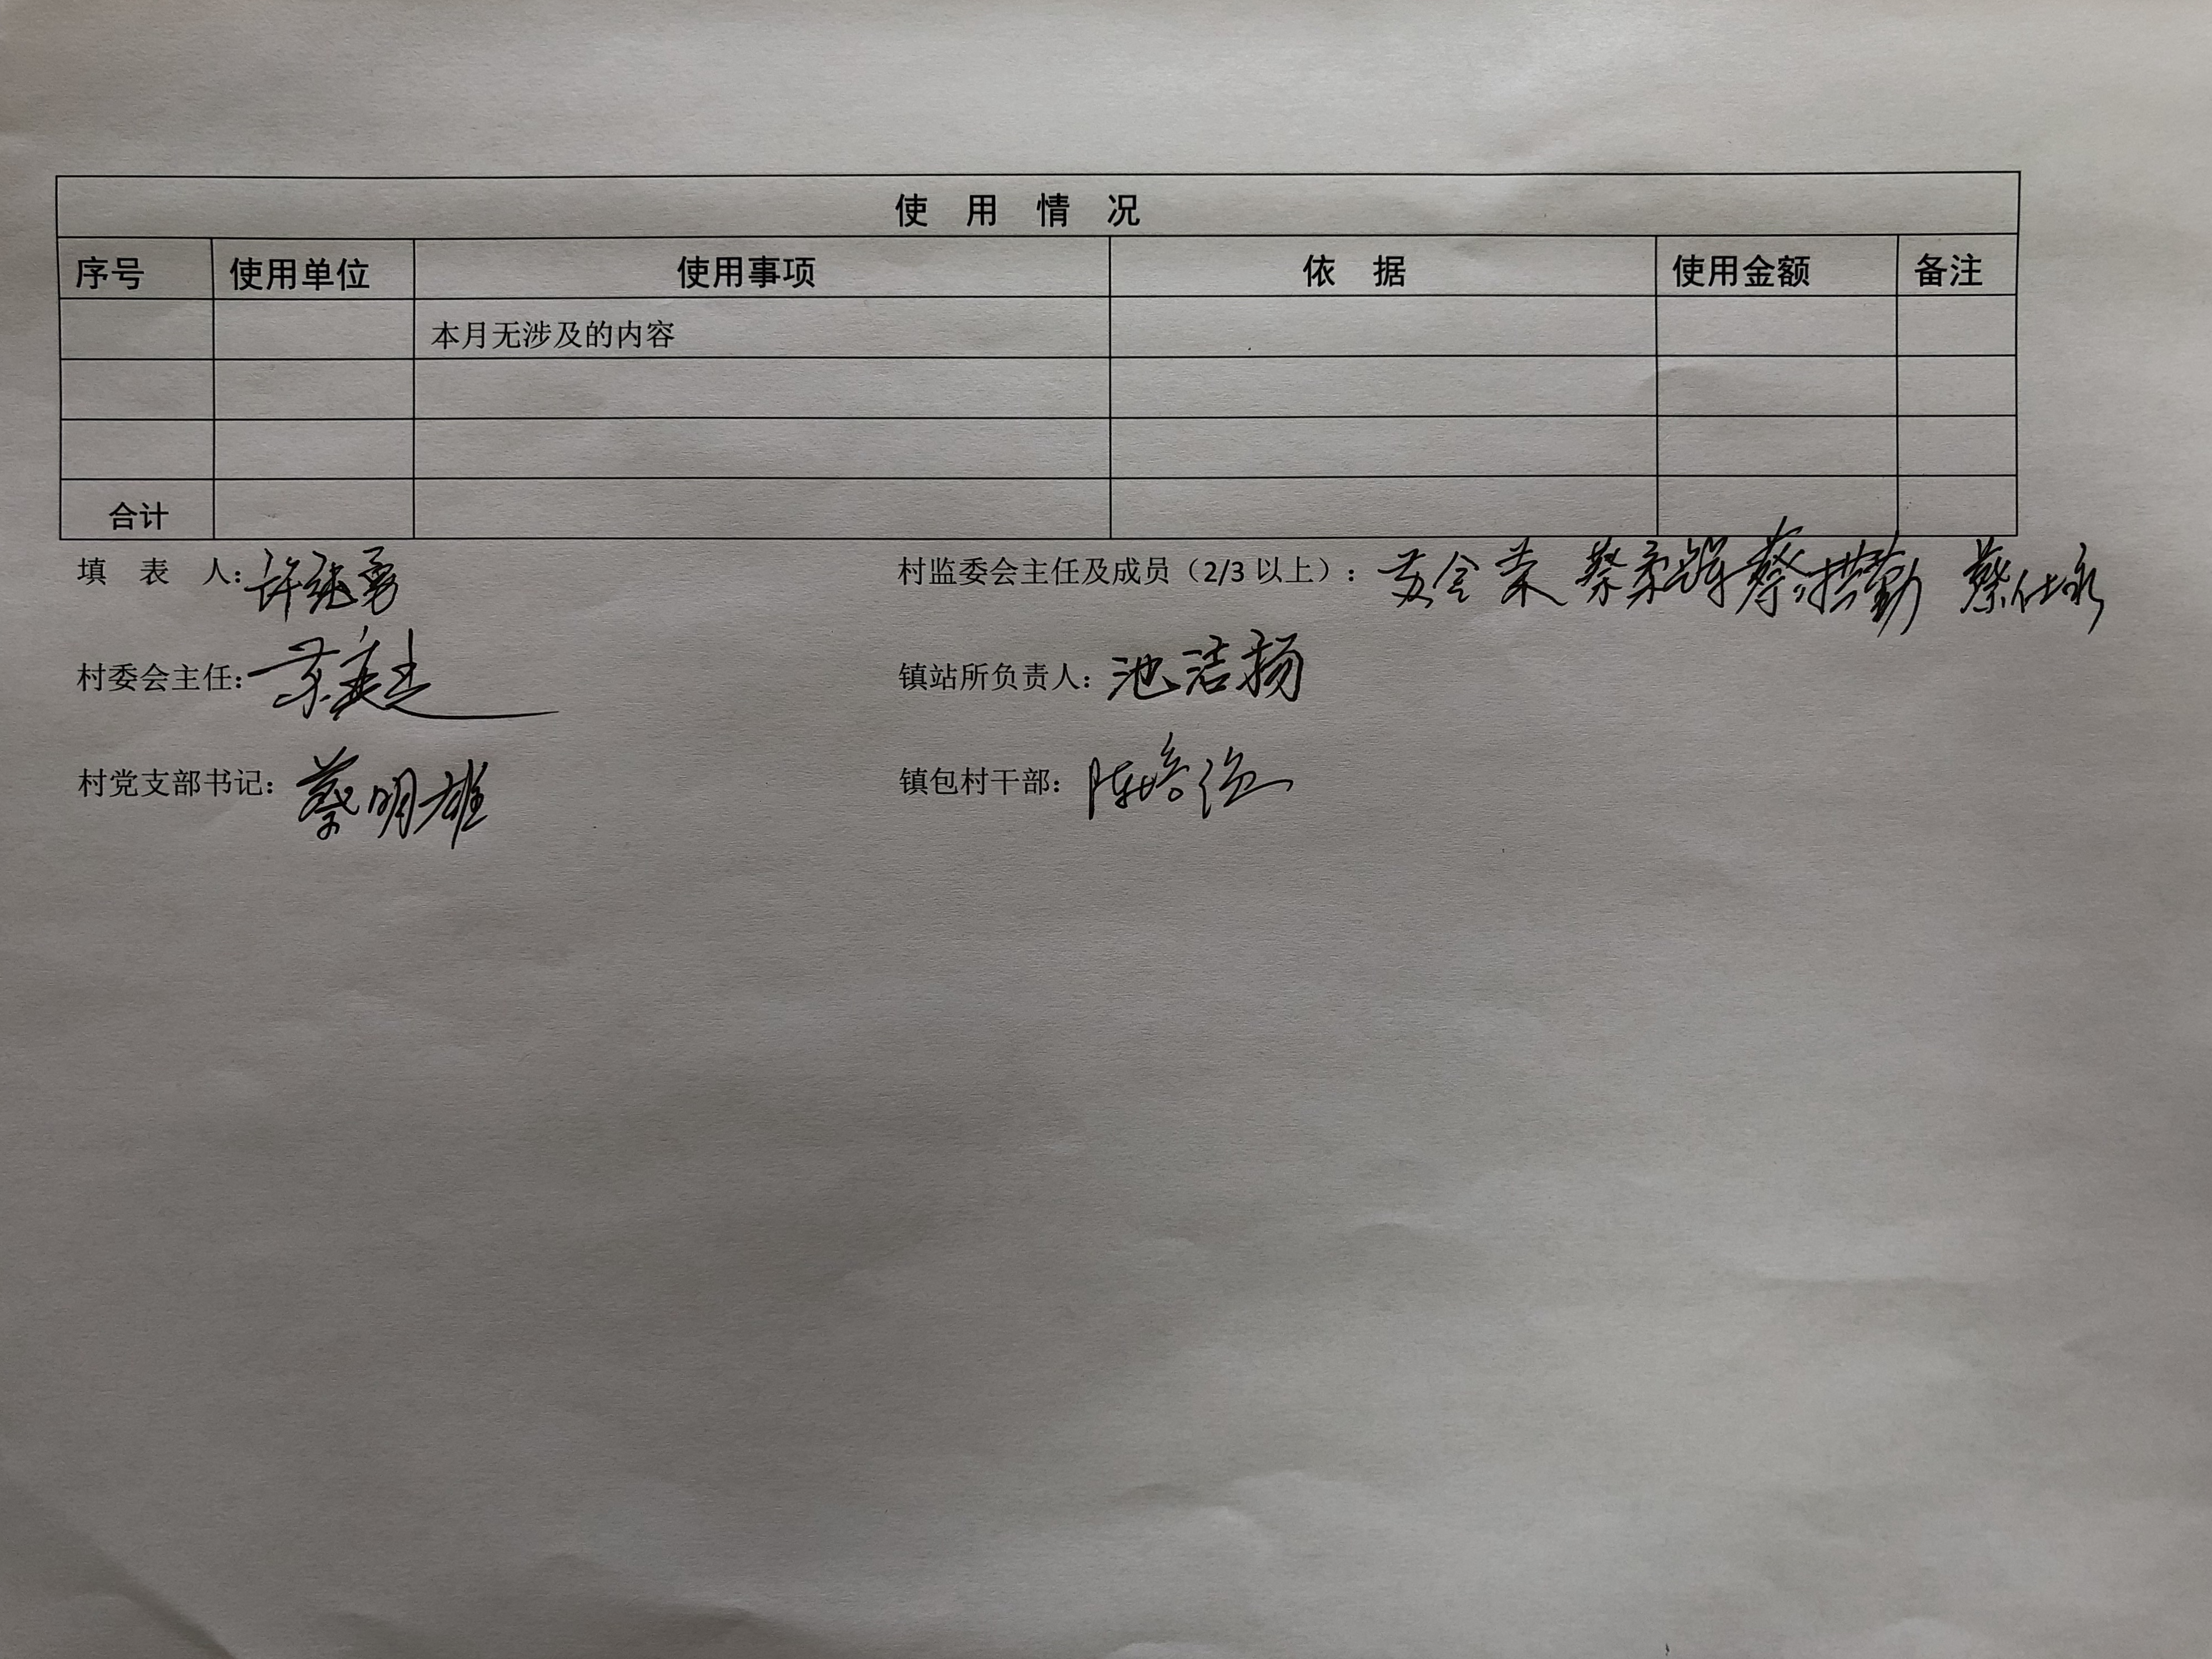 使 用 情 况
序号 使用单位 使用事项 依 据 使用金额 备注
本月无涉及的内容
合计
填 表 人：许继勇 村监委会主任及成员（2/3 以上）： 蔡仕永
村委会主任： 镇站所负责人：池洁扬
村党支部书记：蔡明雄 镇包村干部：